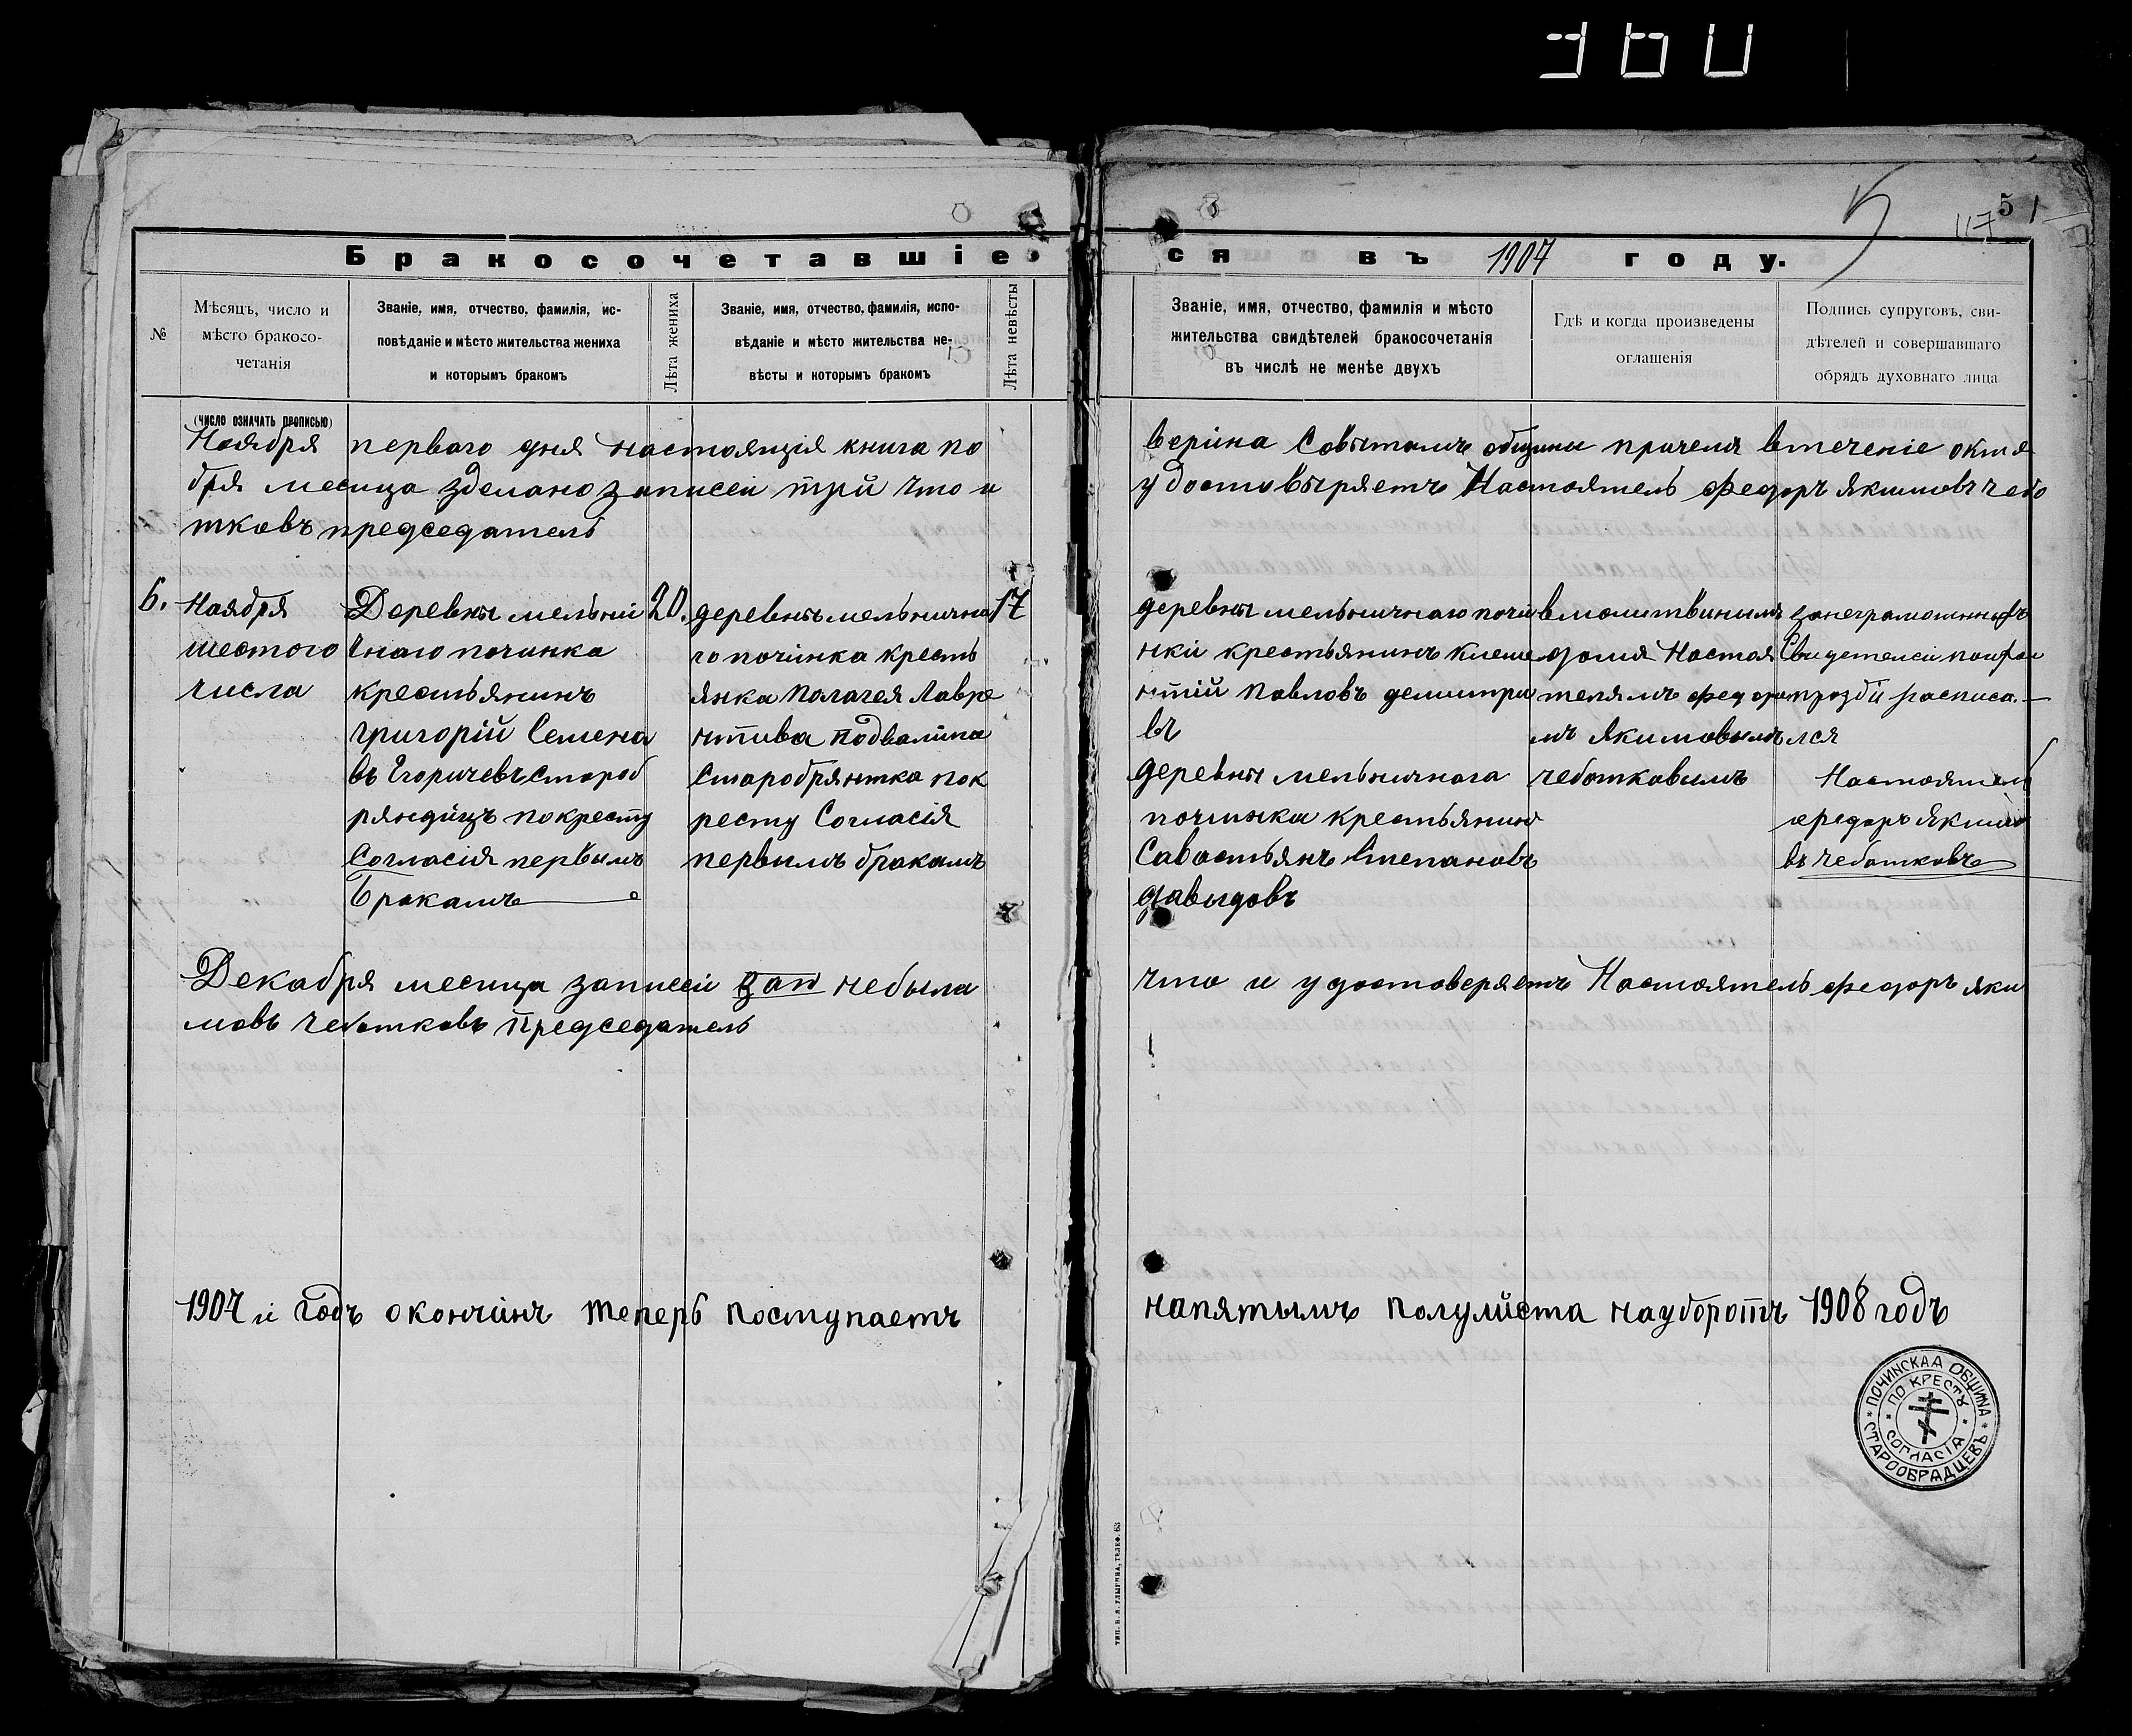 117 5 1
Бракосочетавшіе ся въ 1907 году.
№
Мѣсяцъ, число и
мѣсто бракосо-
четанія
Званіе, имя, отчество, фамилія, ис-
повѣданіе и мѣсто жительства жениха
и которымъ бракомъ
Лѣта жениха
Званіе, имя, отчество, фамилія, испо-
вѣданіе и мѣсто жительства не-
вѣсты и которымъ бракомъ
Лѣта невѣсты
Званіе, имя, отчество, фамилія и мѣсто
жительства свидѣтелей бракосочетанія
въ числѣ не менѣе двухъ
Гдѣ и когда произведены
оглашенія
Подпись супруговъ, сви-
дѣтелей и совершавшаго
обрядъ духовнаго лица
(число означать прописью)
Ноября перваго дня настоящія книга по веріна Совѣтамъ общины причемъ втеченіе октя
бря месеца зделано записеи трй что и удостовѣряетъ Настоятель федоръ якимовъ чебо
тковъ председатель
6.
Ноября
шестого
числа
Деревны мельни
чнаго починка
крестьянинъ
григорій Семена
въ Егоричевъ староб
рядицъ покресту
Согласія первымъ
Бракамъ
20.
деревнымельнична
го почінка кресть
янка палагея Лавре
нтива подвалина
Старобрянтка пок
ресту Согласія
первымъ бракамъ
17
деревны мельничнаго почи
нки крестьянинъ клеме
нтій павловъ демитри
въ
деревны мельничнага
починка крестьянин
Савастьянъ Степановъ
давыдовъ
вмолитвинымъ
доми Настоя
телямъ федоро
мъ якимовымъ
чеботковымъ
занеграмотныхъ
Свидетелеи поихъ
прозби расписа
лся
Настоятель
федоръ якимо
въ чеботковъ
Декабря месеца записеи зап небыла что и удостоверяетъ Настоятель федоръ яки
мовъ чеботковъ председатель
1907 й годъ окончинъ теперь поступаетъ напятымъ полулиста науборотъ 1908 годъ
* ПОЧИНСКАА ОБЩИНА * СТАРООБРАДЦЕВЪ
* ПО КРЕСТУ * СОГЛАСІА